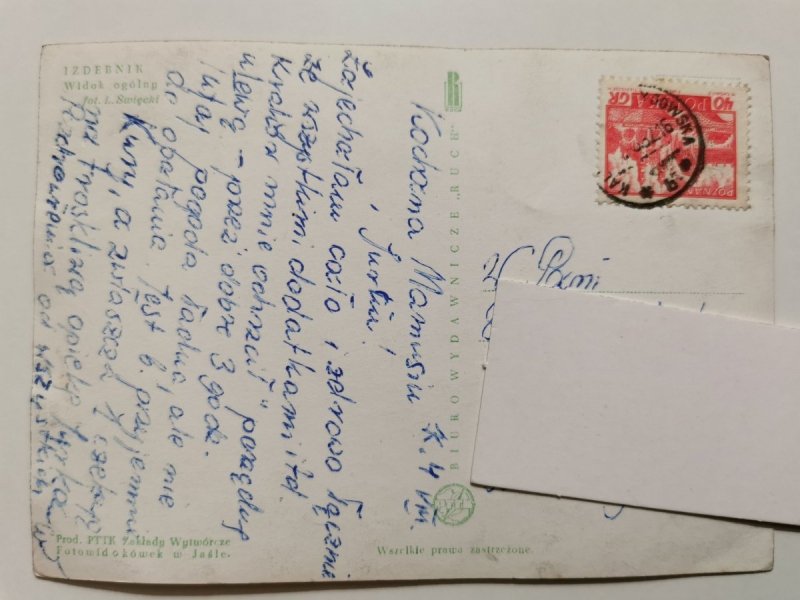 IZDEBNIK
Widok ogólny
fot. L. Święcki
K. 4 VIII.
Kochana Mamusiu
i Jurku!
Zajechałam cało i zdrowo łącznie
ze wszystkimi dodatkami itd.
Kraków mnie ochrzcił porządną
ulewą - przez dobre 3 godz.
Tutaj pogoda ładna, ale nie
do opalania. Jest b. przyjemnie
Kury, a zwłaszcza
pod troskliwą opieką
Pozdrowienia od wszystkich
BIURO WYDAWNICZE „RUCH"
Prod. PTTK Zakłady Wytwórcze
Fotowidokówek w Jaśle.
Wszelkie prawa zastrzeżone.
40 GR
POLSKA
POZNAŃ
Pani